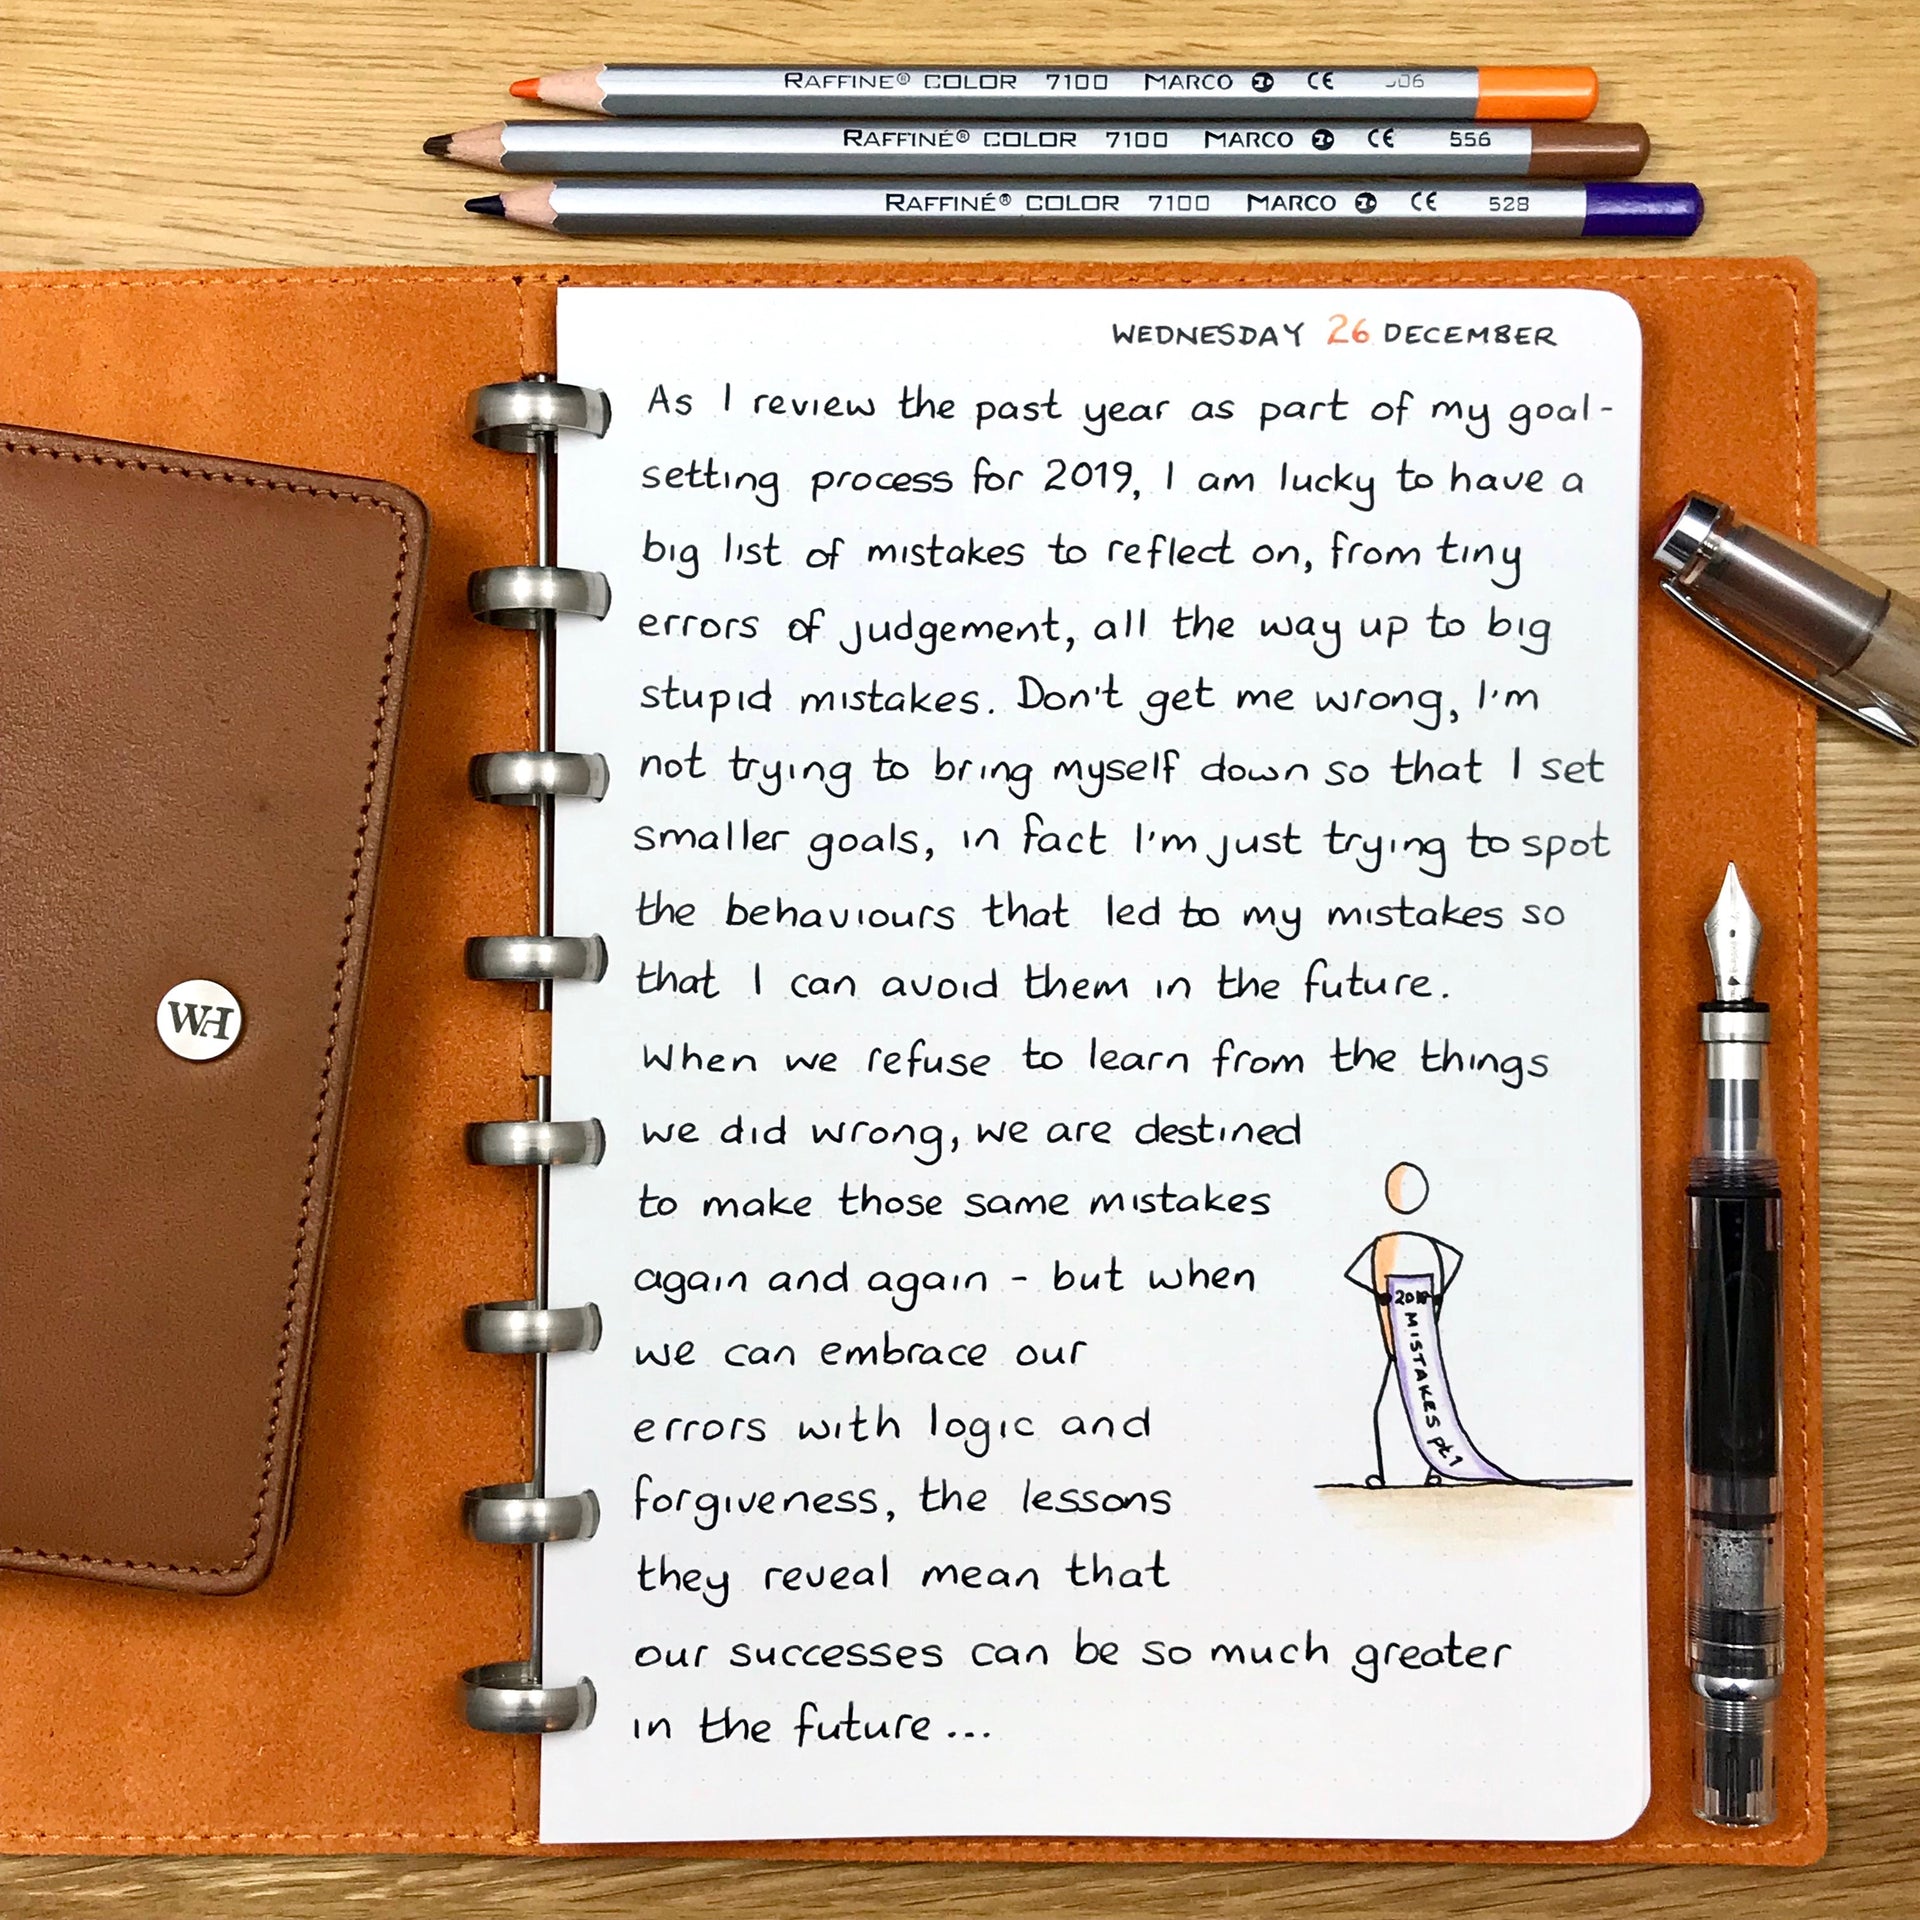 RAFFINE® COLOR 7100 MARCO CE
RAFFINÉ® COLOR 7100 MARCO CE 556
RAFFINÉ® COLOR 7100 MARCO CE 528
WEDNESDAY 26 DECEMBER
As I review the past year as part of my goal-
setting process for 2019, I am lucky to have a
big list of mistakes to reflect on, from tiny
errors of judgement, all the way up to big
stupid mistakes. Don't get me wrong, I'm
not trying to bring myself down so that I set
smaller goals, in fact I'm just trying to spot
the behaviours that led to my mistakes so
that I can avoid them in the future.
When we refuse to learn from the things
we did wrong, we are destined
to make those same mistakes
again and again - but when
we can embrace our
errors with logic and
forgiveness, the lessons
they reveal mean that
our successes can be so much greater
in the future...
2018
MISTAKES pt.1
WH